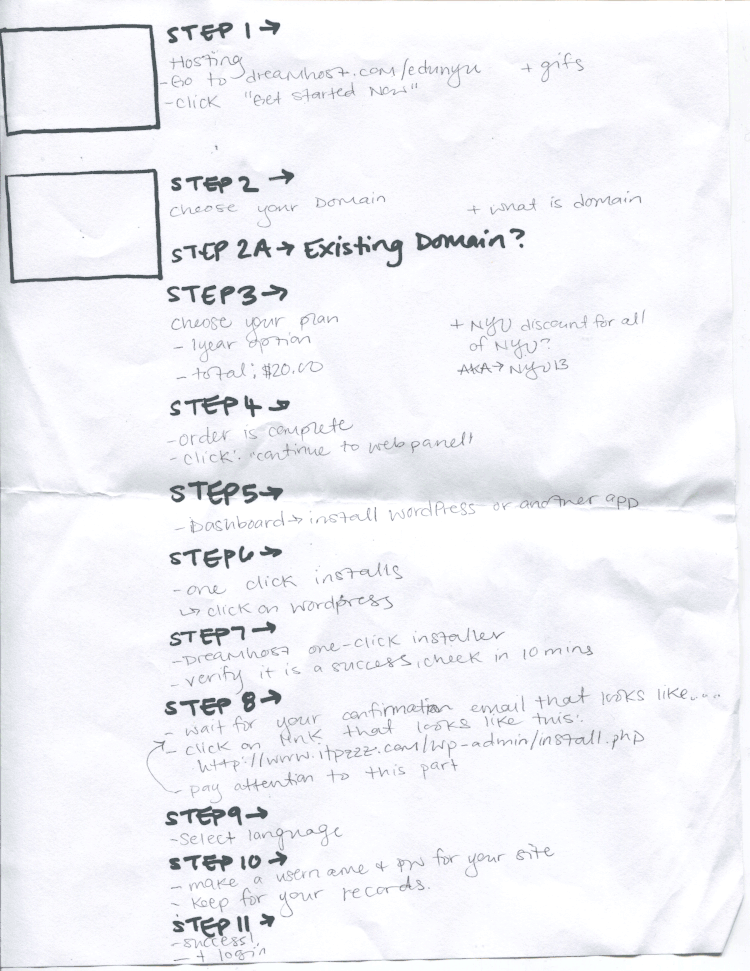 STEP 1 →
Hosting
- Go to dreamhost.com/edunyu + gifs
- click "Get started Now"
STEP 2 →
choose your Domain + what is domain
STEP 2A → Existing Domain?
STEP3 →
choose your plan
- 1year option
- total: $20.00
+ NYU discount for all
of NYU?
AKA → NYU13
STEP 4 →
- order is complete
- click: "continue to web panel"
STEP5 →
- Dashboard → install wordpress or another app
STEP6 →
- one click installs
↳ click on wordpress
STEP7 →
- Dreamhost one-click installer
- verify it is a success, check in 10 mins
STEP 8 →
- wait for your confirmation email that looks like....
- click on link that looks like this:
http://www.itpzzz.com/wp-admin/install.php
- pay attention to this part
STEP9 →
- Select language
STEP 10 →
- make a username & pw for your site
- keep for your records.
STEP 11 →
- success!
- + login